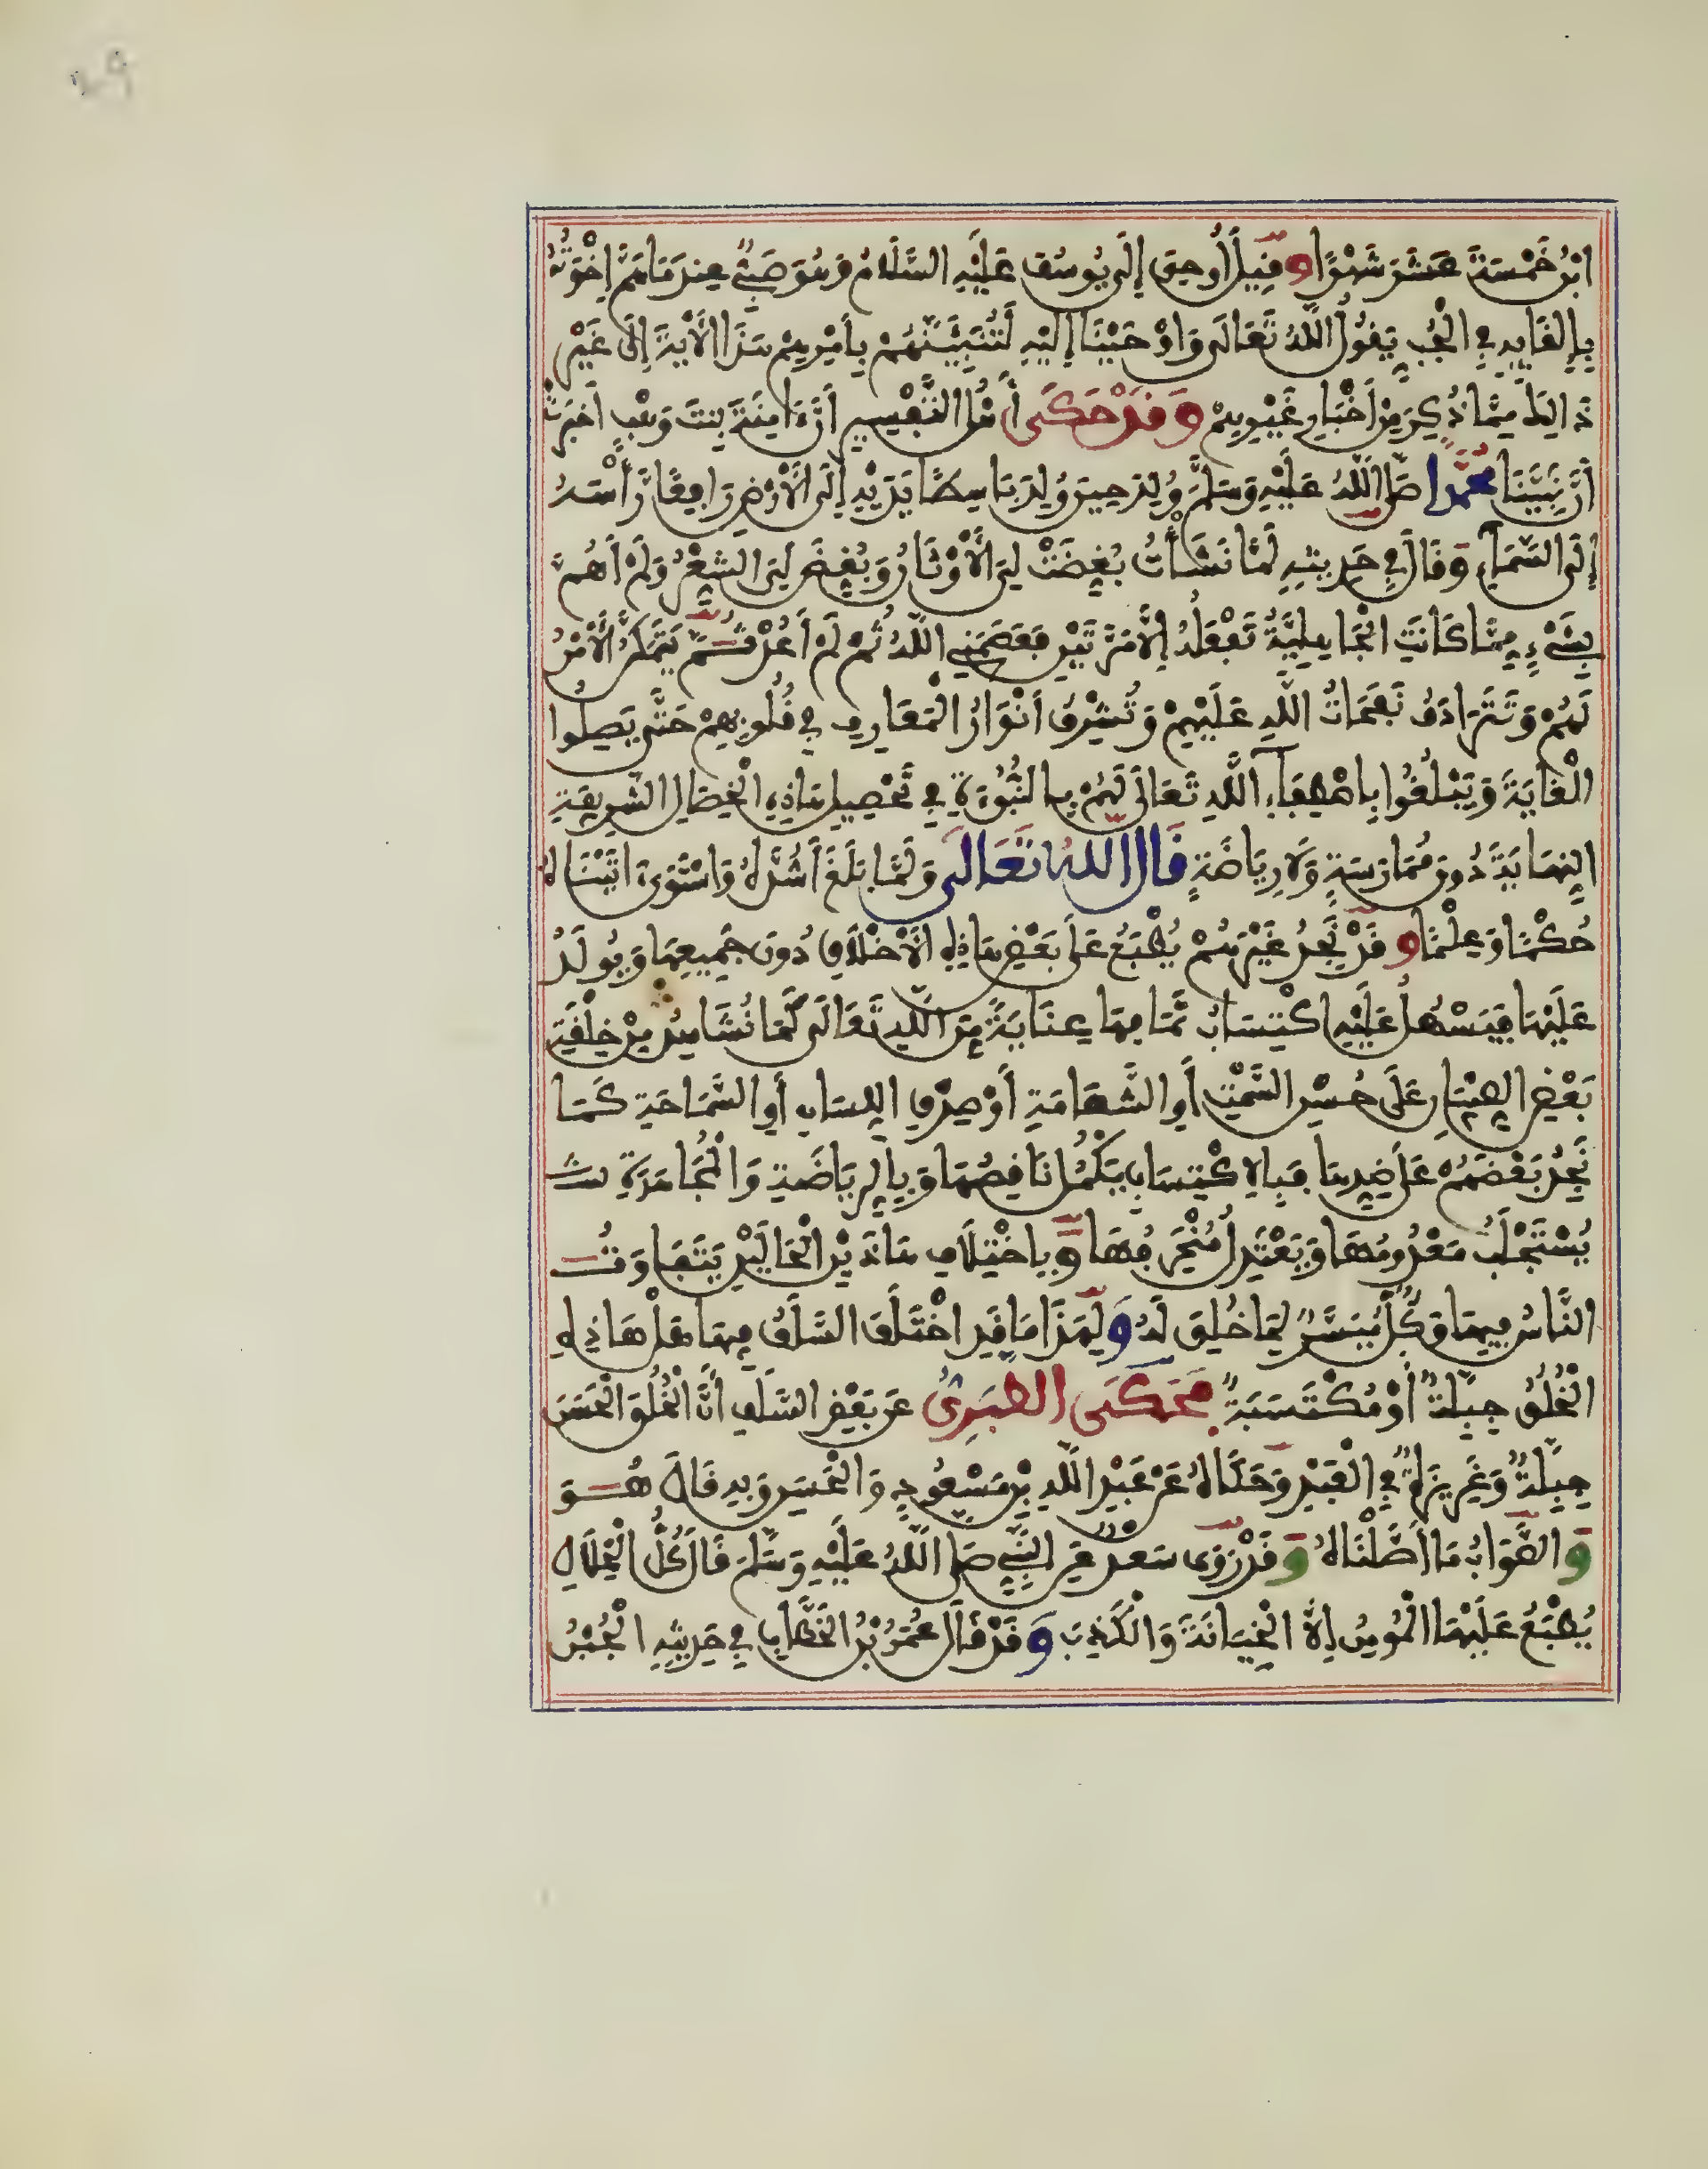 ابْنُ خَمْسَةَ عَشَرَ شَهْرًا وَقِيلَ أُوحِيَ إِلَى يُوسُفَ عَلَيْهِ السَّلَامُ وَهُوَ صَبِيٌّ عِنْدَمَا هَمَّ إِخْوَتُهُ
بِإِلْقَائِهِ فِي الْجُبِّ يَقُولُ اللَّهُ تَعَالَى وَأَوْحَيْنَا إِلَيْهِ لَتُنَبِّئَنَّهُمْ بِأَمْرِهِمْ هَذَا الْآيَةَ إِلَى غَيْرِ
ذَالِكَ مِمَّا ذُكِرَ مِنْ أَخْبَارِ غَيْرِهِمْ وَقَدْ حَكَى أَهْلُ التَّفْسِيرِ أَنَّ آمِنَةَ بِنْتَ وَهْبٍ أَخْبَرَتْ
أَنَّ نَبِيَّنَا مُحَمَّدًا صَلَّى اللَّهُ عَلَيْهِ وَسَلَّمَ وُلِدَ حِينَ وُلِدَ بَاسِطًا يَدَيْهِ إِلَى الْأَرْضِ رَافِعًا رَأْسَهُ
إِلَى السَّمَاءِ وَقَالَ فِي حَدِيثِهِ لَمَّا نَشَأْتُ بُغِّضَتْ لِيَ الْأَوْثَانُ وَبُغِّضَ لِيَ الشِّعْرُ وَلَمْ أَهُمَّ
بِشَيْءٍ مِمَّا كَانَتِ الْجَاهِلِيَّةُ تَفْعَلُهُ إِلَّا مَرَّتَيْنِ فَعَصَمَنِي اللَّهُ ثُمَّ لَمْ أَعُدْ ثُمَّ يَتَمَكَّنُ الْأَمْرُ
لَهُمْ وَتَتَرَادَفُ نَفَحَاتُ اللَّهِ عَلَيْهِمْ وَتُشْرِقُ أَنْوَارُ الْمَعَارِفِ فِي قُلُوبِهِمْ حَتَّى يَصِلُوا
الْغَايَةَ وَيَبْلُغُوا بِاصْطِفَاءِ اللَّهِ تَعَالَى لَهُمْ بِالنُّبُوءَةِ فِي تَحْصِيلِ هَاذِهِ الْخِصَالِ الشَّرِيفَةِ
النِّهَايَةَ دُونَ مُمَارَسَةٍ وَلَا رِيَاضَةٍ قَالَ اللَّهُ تَعَالَى وَلَمَّا بَلَغَ أَشُدَّهُ وَاسْتَوَى آتَيْنَاهُ
حُكْمًا وَعِلْمًا وَقَدْ نَجِدُ غَيْرَهُمْ يُطْبَعُ عَلَى بَعْضِ هَاذِهِ الْأَخْلَاقِ دُونَ جَمِيعِهَا وَيُولَدُ
عَلَيْهَا فَيَسْهُلُ عَلَيْهِ اكْتِسَابُ تَمَامِهَا عِنَايَةً مِنَ اللَّهِ تَعَالَى كَمَا نُشَاهِدُ مِنْ خِلْقَةِ
بَعْضِ الصِّبْيَانِ عَلَى حُسْنِ السَّمْتِ أَوِ الشَّهَامَةِ أَوْ صِدْقِ اللِّسَانِ أَوِ السَّمَاحَةِ كَمَا
نَجِدُ بَعْضَهُمْ عَلَى ضِدِّهَا فَبِالِاكْتِسَابِ يَكْمُلُ نَاقِصُهَا وَبِالرِّيَاضَةِ وَالْمُجَاهَدَةِ
يُسْتَجْلَبُ مَعْدُومُهَا وَيَعْتَدِلُ مُنْحَرِفُهَا وَبِاخْتِلَافِ هَاذَيْنِ الْحَالَيْنِ يَتَفَاوَتُ
النَّاسُ فِيهَا وَكُلٌّ مُيَسَّرٌ لِمَا خُلِقَ لَهُ وَلِهَذَا مَا قَدِ اخْتَلَفَ السَّلَفُ فِيهَا هَلْ هَاذِهِ
الْخُلُقُ جِبِلَّةٌ أَوْ مُكْتَسَبَةٌ فَحَكَى الطَّبَرِيُّ عَنْ بَعْضِ السَّلَفِ أَنَّ الْخُلُقَ الْحَسَنَ
جِبِلَّةٌ وَغَرِيزَةٌ فِي الْعَبْدِ وَحَكَاهُ عَنْ عَبْدِ اللَّهِ بْنِ مَسْعُودٍ وَالْحَسَنِ وَبِهِ قَالَ هُوَ
وَالصَّوَابُ مَا أَصَّلْنَاهُ وَقَدْ رَوَى سَعْدٌ عَنِ النَّبِيِّ صَلَّى اللَّهُ عَلَيْهِ وَسَلَّمَ قَالَ كُلُّ الْخِلَالِ
يُطْبَعُ عَلَيْهَا الْمُومِنُ إِلَّا الْخِيَانَةَ وَالْكَذِبَ وَقَدْ قَالَ عُمَرُ بْنُ الْخَطَّابِ فِي حَدِيثِهِ الْجُبْنُ